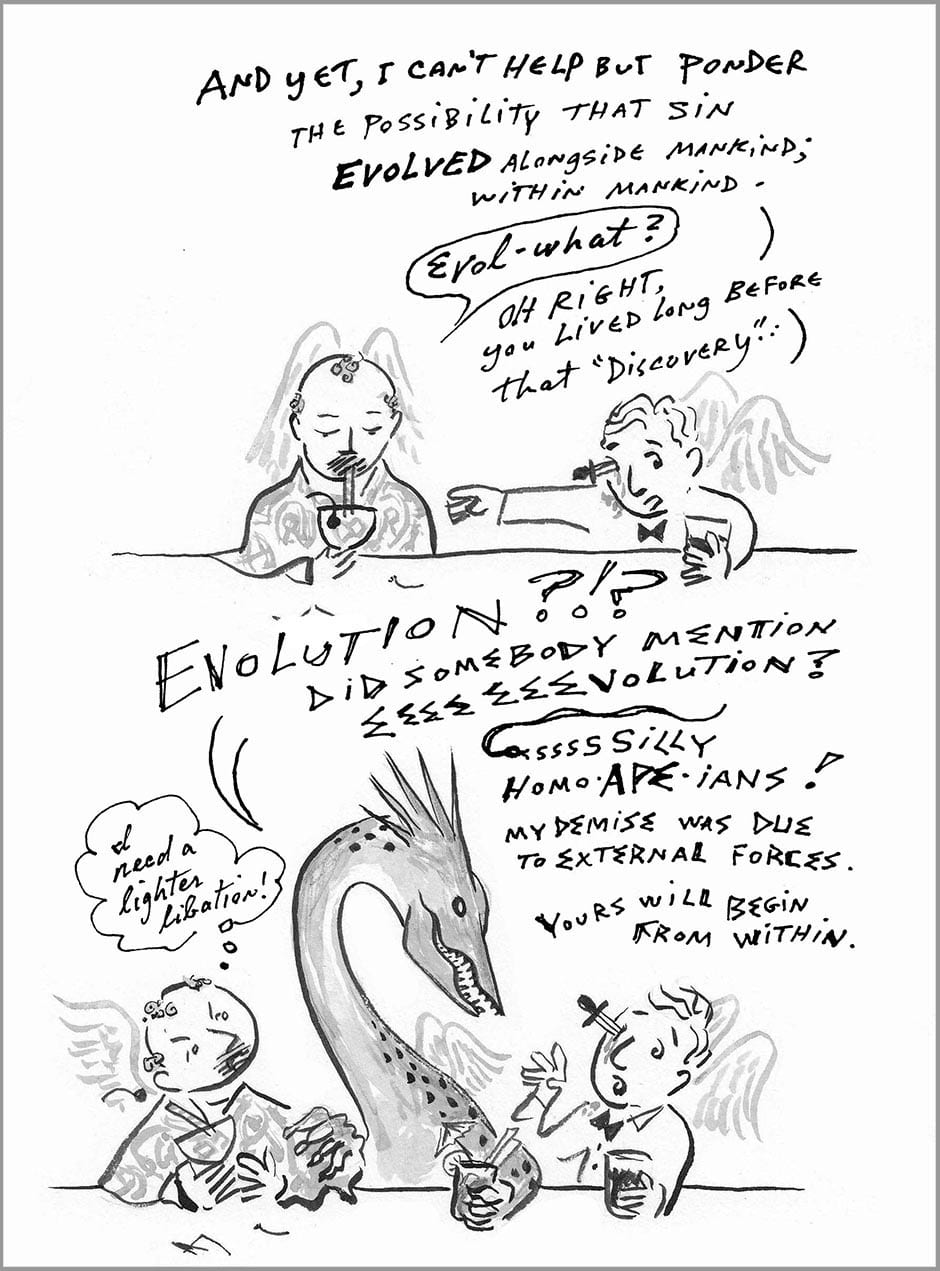 AND YET, I CAN'T HELP BUT PONDER
THE POSSIBILITY THAT SIN
EVOLVED ALONGSIDE MANKIND;
WITHIN MANKIND.
Evol-what?
OH RIGHT,
you LIVED Long BEFORE
that "DISCOVERY"...
EVOLUTION ?!?
DID SOMEBODY MENTION
EEEE EEEVOLUTION?
SSSSSILLY
HOMO·APE·IANS!
MY DEMISE WAS DUE
TO EXTERNAL FORCES.
YOURS WILL BEGIN
FROM WITHIN.
I
need a
lighter
libation!